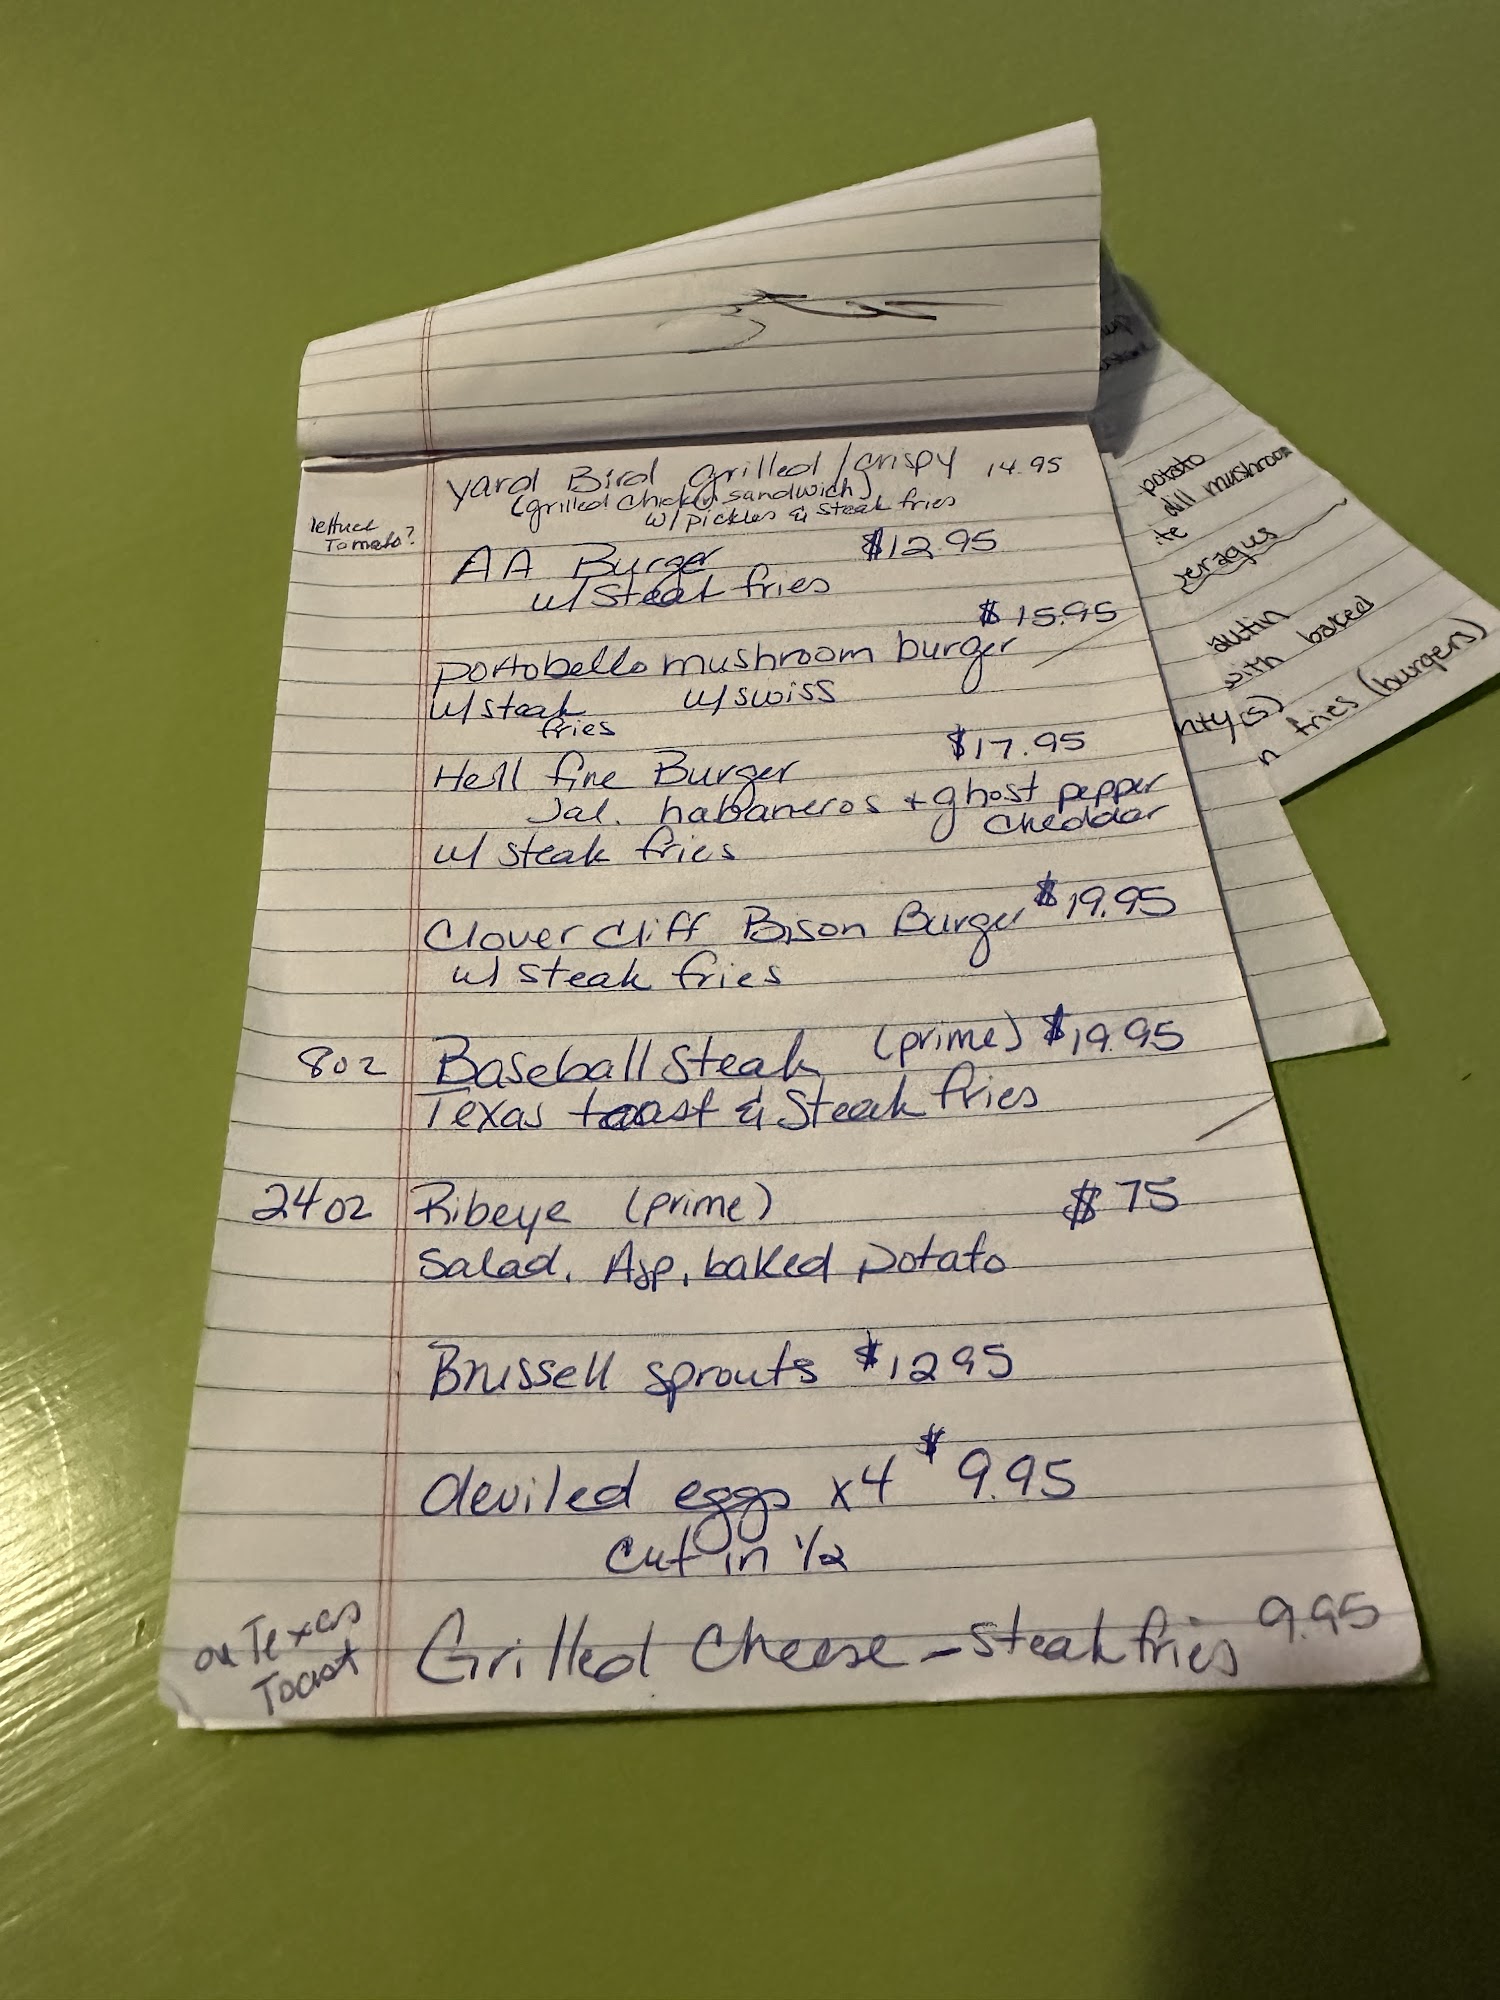 Yard Bird grilled/crispy 14.95
(grilled chicken sandwich)
w/ pickles & steak fries
lettuce
Tomato?
AA Burger $12.95
w/ Steak fries
$15.95
portobello mushroom burger
w/ steak w/ swiss
fries
Hell fire Burger $17.95
Jal. habaneros + ghost pepper
cheddar
w/ steak fries
Clover Cliff Bison Burger $19.95
w/ steak fries
8oz Baseball Steak (prime) $19.95
Texas toast & Steak fries
24oz Ribeye (prime) $75
Salad, Asp, baked potato
Brussell sprouts $12 95
deviled eggs x4 $9.95
cut in 1/2
on Texas
Toast
Grilled Cheese - steak fries 9.95
potato
dill mushroom
autin
with baked
fries (burgers)